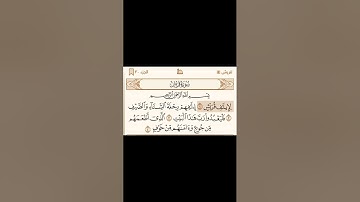 الجزء ٣٠
سُورَةُ قُرَيْشٍ
بِسْمِ ٱللَّهِ ٱلرَّحْمَٰنِ ٱلرَّحِيمِ
لِإِيلَٰفِ قُرَيْشٍ ١ إِۦلَٰفِهِمْ رِحْلَةَ ٱلشِّتَآءِ وَٱلصَّيْفِ
٢ فَلْيَعْبُدُوا۟ رَبَّ هَٰذَا ٱلْبَيْتِ ٣ ٱلَّذِىٓ أَطْعَمَهُم
مِّن جُوعٍ وَءَامَنَهُم مِّنْ خَوْفٍۭ ٤